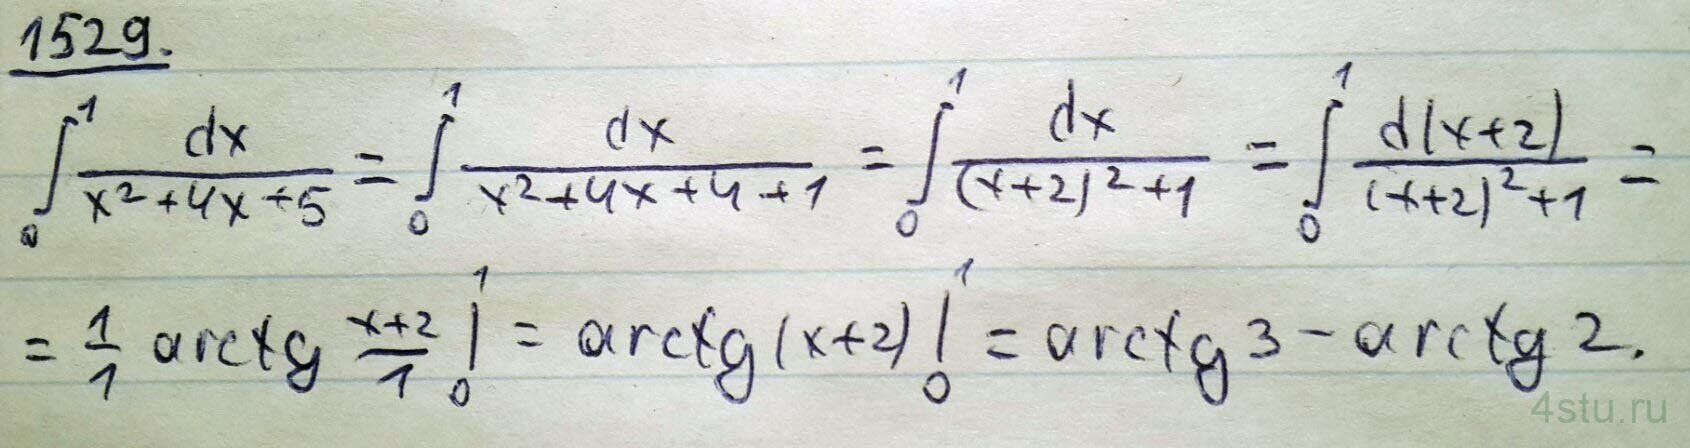 1529.
∫₀¹ dx/(x²+4x+5) = ∫₀¹ dx/(x²+4x+4+1) = ∫₀¹ dx/((x+2)²+1) = ∫₀¹ d(x+2)/((x+2)²+1) =
= 1/1 arctg (x+2)/1 |₀¹ = arctg(x+2) |₀¹ = arctg 3 - arctg 2.
4stu.ru